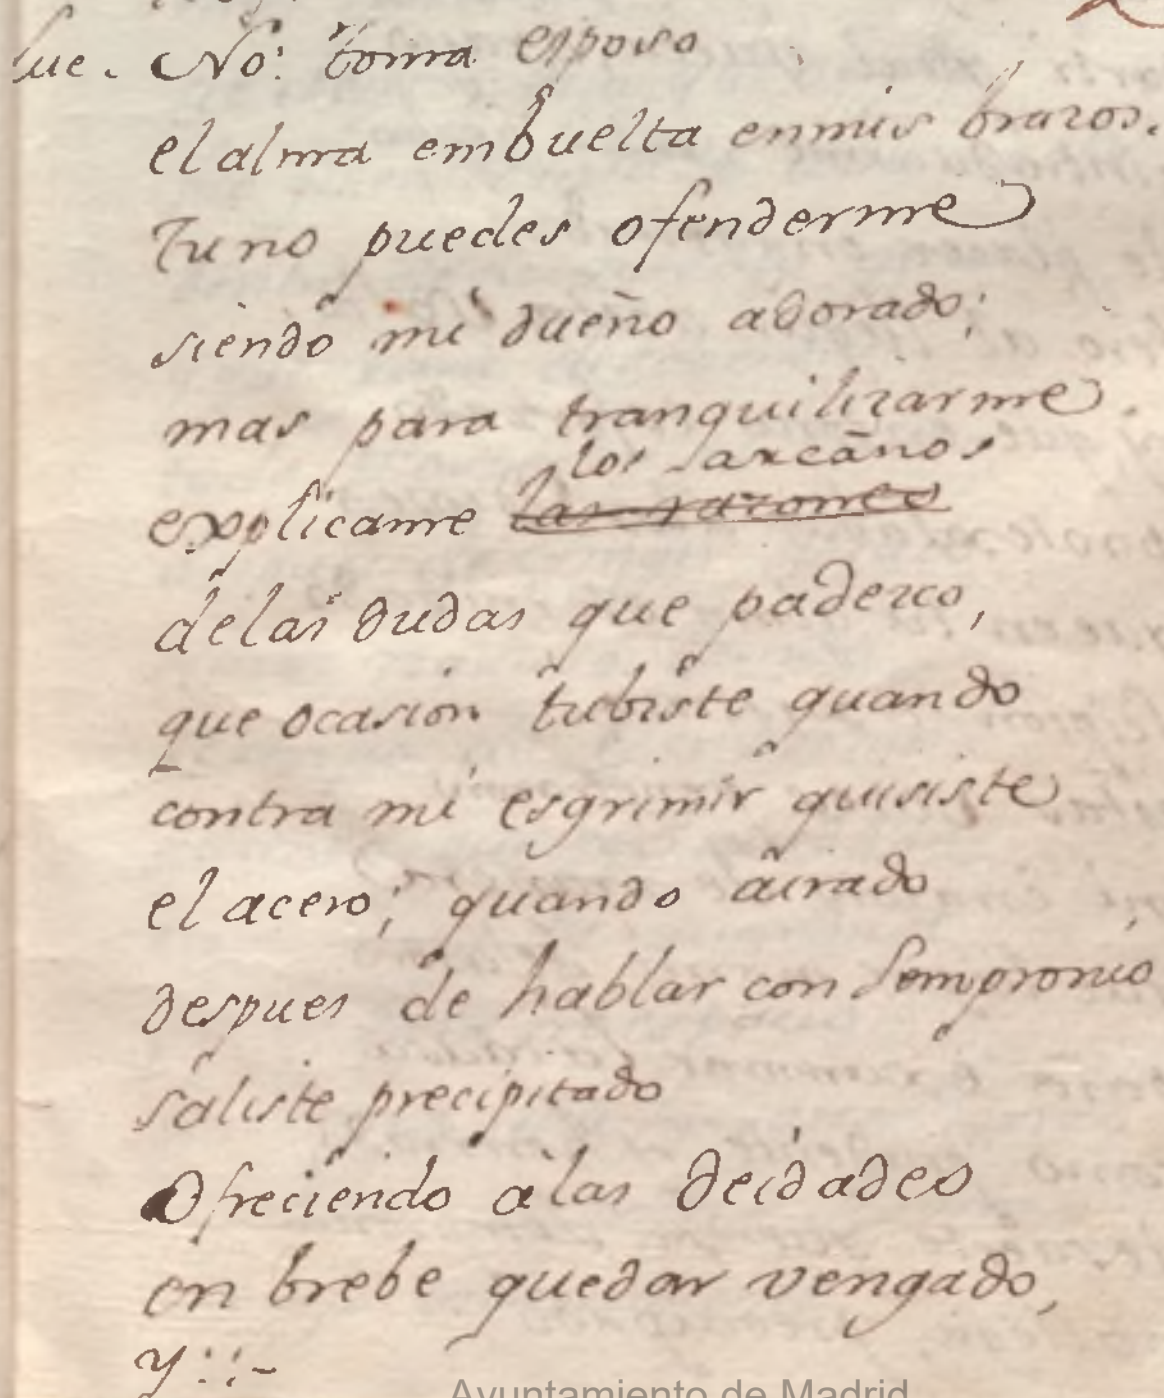 Lue. No: toma esposo
el alma embuelta en mis brazos.
Tu no puedes ofenderme
siendo mi dueño adorado;
mas para tranquilizarme.
los arcanos
explicame las razones
de las dudas que padezco,
que ocasion tubiste quando
contra mi esgrimir quisiste
el acero; quando airado
despues de hablar con Sempronio
saliste precipitado
Ofreciendo à las deidades
en brebe quedar vengado,
y::-
Ayuntamiento de Madrid